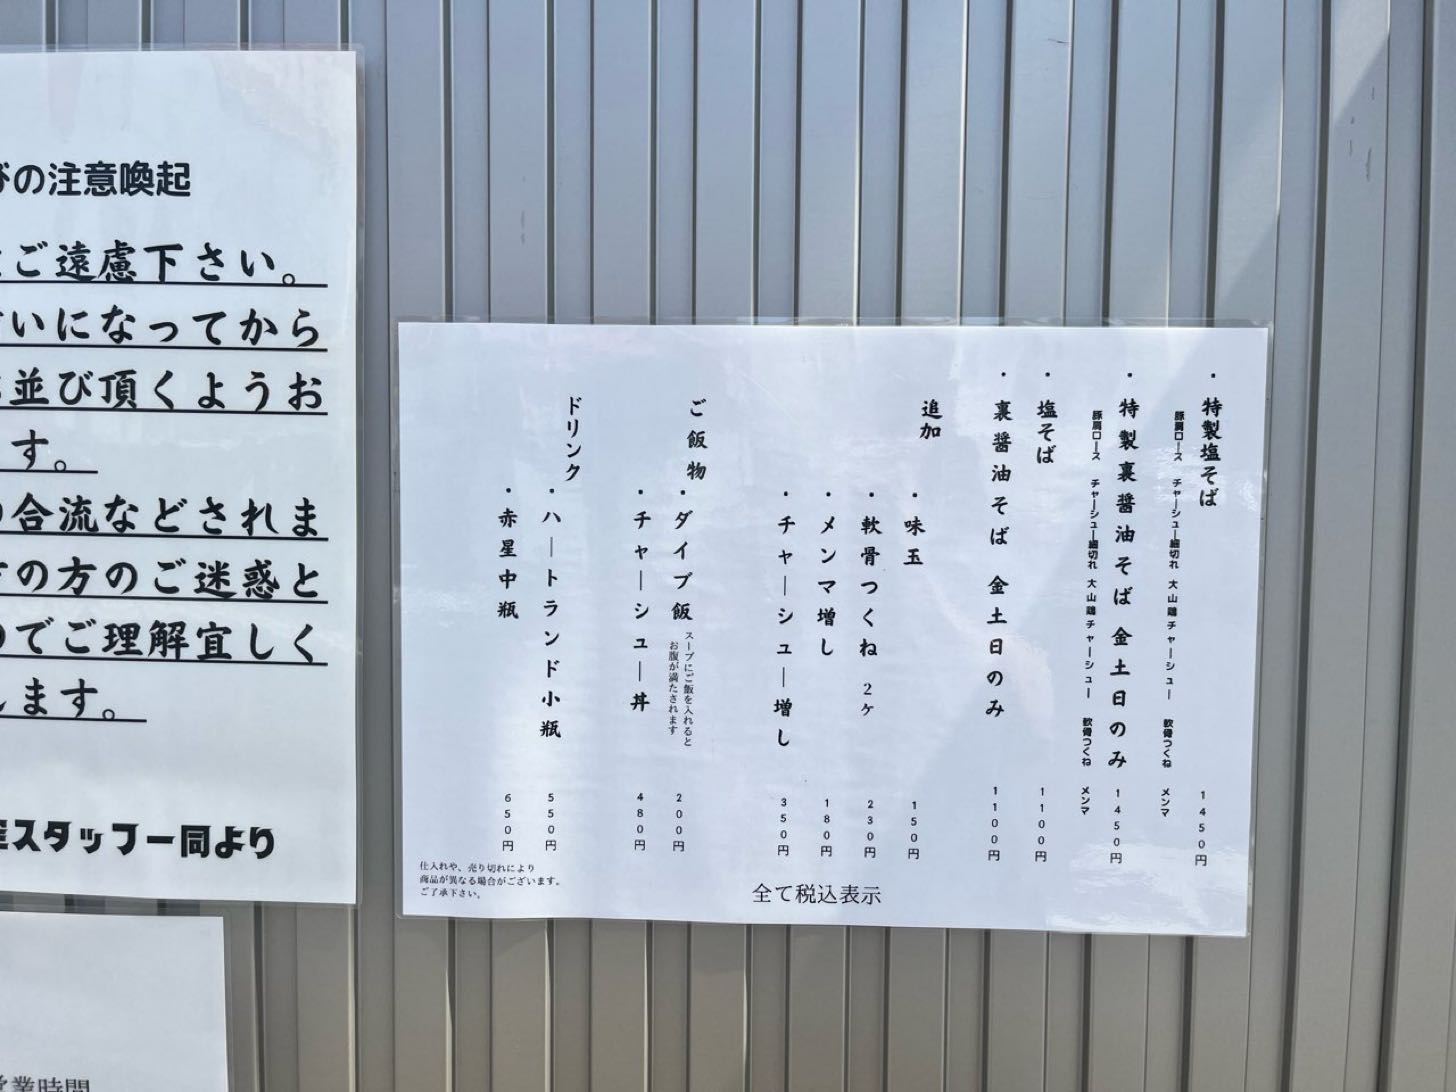 びの注意喚起
ご遠慮下さい。
いになってから
並び頂くようお
す。
合流などされま
の方のご迷惑と
でご理解宜しく
します。
スタッフ一同より
営業時間
・特製塩そば 1450円
豚肩ロース チャーシュー細切れ 大山鶏チャーシュー 軟骨つくね メンマ
・特製裏醤油そば 金土日のみ 1450円
豚肩ロース チャーシュー細切れ 大山鶏チャーシュー 軟骨つくね メンマ
・塩そば 1100円
・裏醤油そば 金土日のみ 1100円
追加
・味玉 150円
・軟骨つくね 2ケ 230円
・メンマ増し 180円
・チャーシュー増し 350円
ご飯物
・ダイブ飯 スープにご飯を入れると 200円
お腹が満たされます
・チャーシュー丼 480円
ドリンク
・ハートランド小瓶 550円
・赤星中瓶 650円
仕入れや、売り切れにより
商品が異なる場合がございます。
ご了承下さい。
全て税込表示